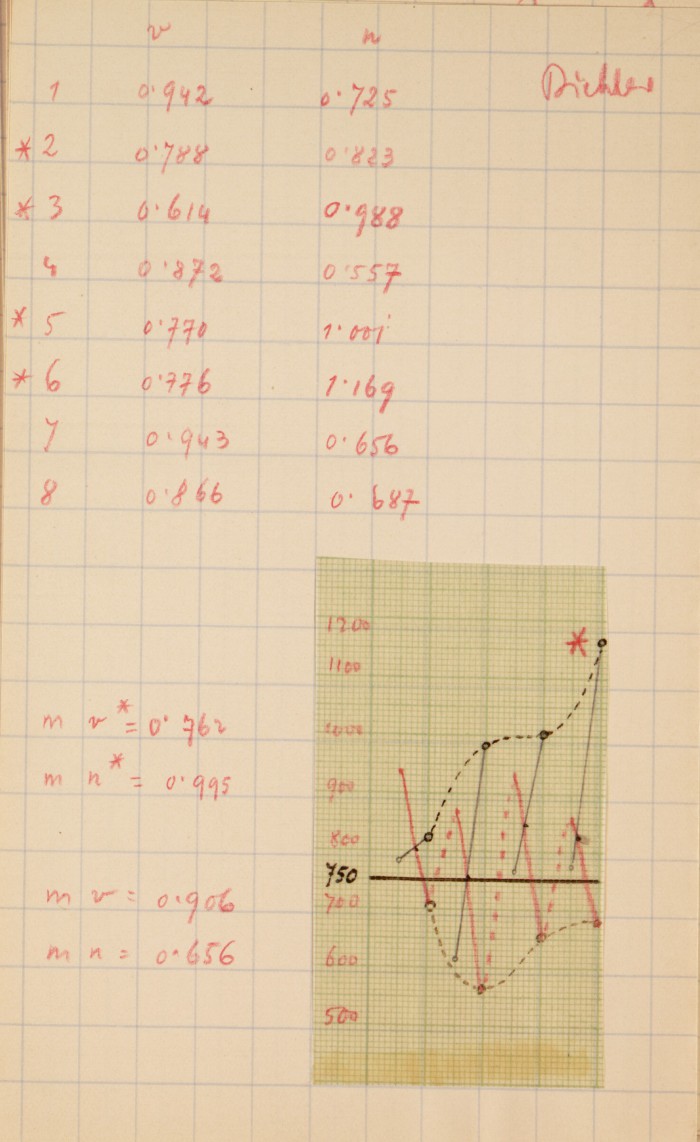 v n
1 0.942 0.725
* 2 0.788 0.823
* 3 0.614 0.988
4 0.872 0.557
* 5 0.770 1.001
* 6 0.776 1.169
7 0.943 0.656
8 0.866 0.687
1200
*
1100
1000
900
800
750
700
600
500
m v* = 0.762
m n* = 0.995
m v = 0.906
m n = 0.656